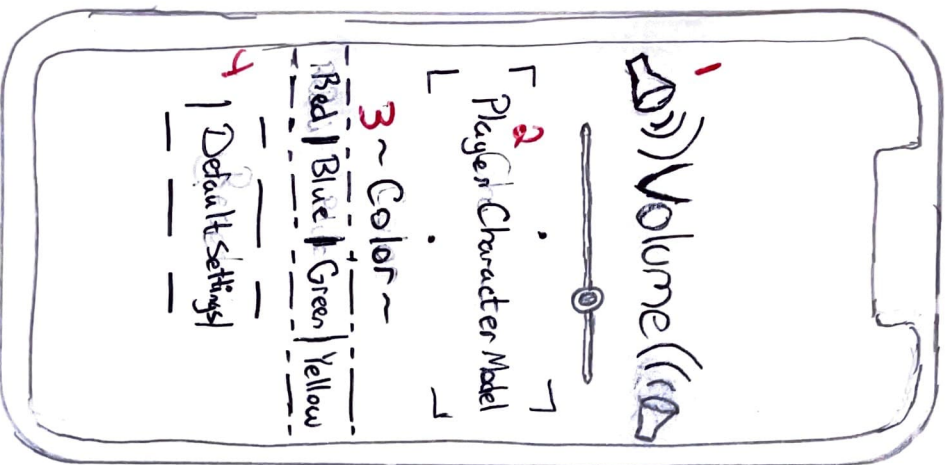 1
Volume
2
Player Character Model
3 ~ Color ~
Red | Blue | Green | Yellow
4
| Default Settings |